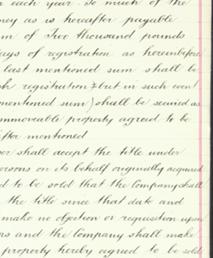 each year. So much of the
ney as is hereafter payable
m of Two thousand pounds
ays of registration as hereinbefore
last mentioned sum shall be
h registration & but in such event
mentioned sum) shall be secured as
immoveable property agreed to be
after mentioned
er shall accept the title under
ersons on its behalf originally acquired
d to be sold that the Company shall
the title since that date and
make no objection or requisition upon
rs and the Company shall make
property hereby agreed to be sold